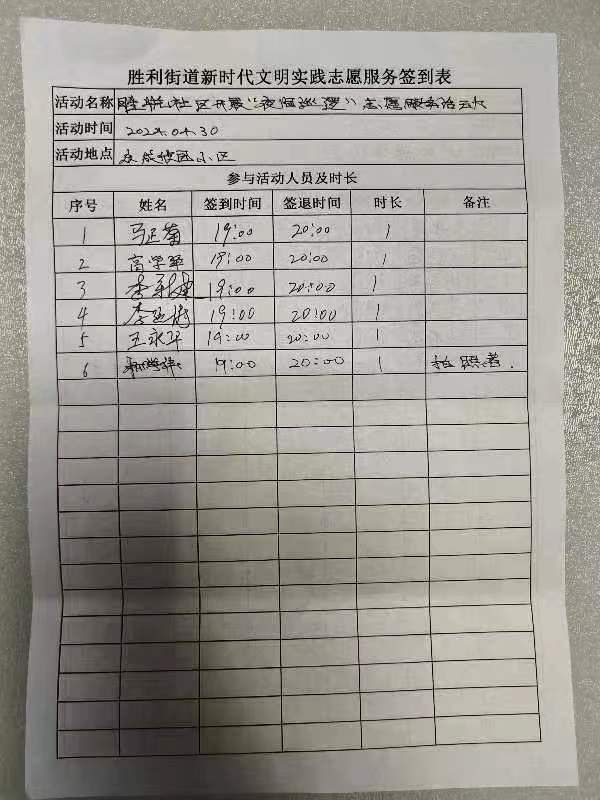 胜利街道新时代文明实践志愿服务签到表
活动名称 社区开展"夜间巡逻"志愿服务活动
活动时间 2024.04.30
活动地点 小区
参与活动人员及时长
序号 姓名 签到时间 签退时间 时长 备注
1 马正菊 19:00 20:00 1
2 高学平 19:00 20:00 1
3 李 19:00 20:00 1
4 李 19:00 20:00 1
5 王永平 19:00 20:00 1
6 19:00 20:00 1 拍照者.